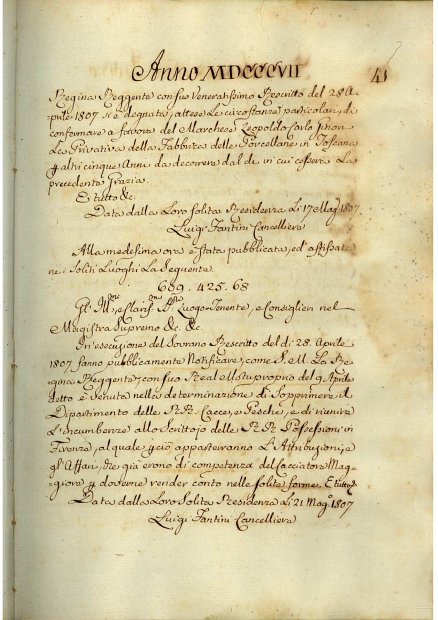 Anno MDCCCVII
41
Regina Reggente con suo Veneratissimo Rescritto del 28 A-
prile 1807 si è degnata, attese le circostanze particolari, di
confermare a favore del Marchese Leopoldo Carlo Ginori
La Privativa della Fabbrica delle Porcellane in Toscana
p altri cinque Anni da decorrere dal dì in cui cesserà La
precedente Grazia.
E tutto &c.
Data dalla Loro Solita Residenza Li 17 Magº 1807
Luigi Fantini Cancelliere
Alla medesima ora è stata pubblicata, ed affissata
nei Soliti Luoghi La Seguente
689. 425. 68
Gl' Luogo-Tenente, e Consiglieri nel
Magistra Supremo &c. &c.
In esecuzione del Sovrano Rescritto del dì 28. Aprile
1807 fanno pubblicamente Notificare, come S. M. La Re-
gina Reggente, con suo Real Motuproprio del 9 Aprile
detto è Venuta nella determinazione di Sopprimere il
Dipartimento delle RR. Cacce, e Pesche, e di riunire
L'incumbenze allo Scrittojo delle RR. Possessioni in
Firenze, al quale p ciò apparterranno L'Attribuzioni, e
gl'Affari, che già erono di competenza del Cacciatore Mag-
giore p doverne render conto nelle Solite forme. E tutto
Data dalla Loro Solita Residenza Li 21 Magº 1807
Luigi Fantini Cancelliere